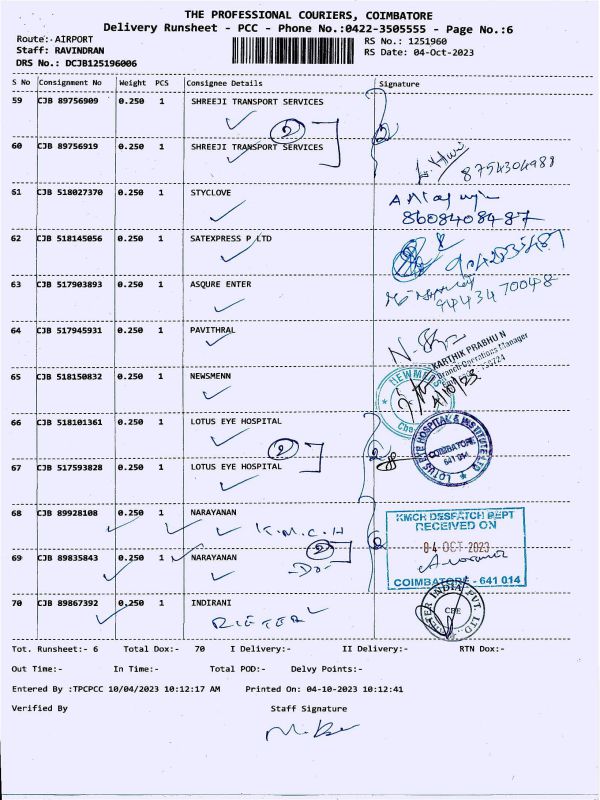 THE PROFESSIONAL COURIERS, COIMBATORE
Delivery Runsheet - PCC - Phone No.:0422-3505555 - Page No.:6
Route:- AIRPORT
RS No.: 1251960
Staff: RAVINDRAN
RS Date: 04-Oct-2023
DRS No.: DCJB125196006
S No Consignment No Weight PCS Consignee Details Signature
59 CJB 89756909 0.250 1 SHREEJI TRANSPORT SERVICES
2 2
60 CJB 89756919 0.250 1 SHREEJI TRANSPORT SERVICES
8754304988
61 CJB 518027370 0.250 1 STYCLOVE
8608408487
62 CJB 518145056 0.250 1 SATEXPRESS P LTD
9042835487
63 CJB 517903893 0.250 1 ASQURE ENTER
9443470048
64 CJB 517945931 0.250 1 PAVITHRAL
KARTHIK PRABHU N
Branch Operations Manager
65 CJB 518150832 0.250 1 NEWSMENN
4/10/23
66 CJB 518101361 0.250 1 LOTUS EYE HOSPITAL
LOTUS EYE HOSPITAL & INSTITUTE LTD
COIMBATORE
641 014
2 2
67 CJB 517593828 0.250 1 LOTUS EYE HOSPITAL
68 CJB 89928108 0.250 1 NARAYANAN
K.M.C.H
KMCH DESPATCH DEPT
RECEIVED ON
04 OCT 2023
COIMBATORE - 641 014
2 2
69 CJB 89835843 0.250 1 NARAYANAN
-Do-
70 CJB 89867392 0.250 1 INDIRANI
RIETER
Tot. Runsheet:- 6 Total Dox:- 70 I Delivery:- II Delivery:- RTN Dox:-
Out Time:- In Time:- Total POD:- Delvy Points:-
Entered By :TPCPCC 10/04/2023 10:12:17 AM Printed On: 04-10-2023 10:12:41
Verified By Staff Signature